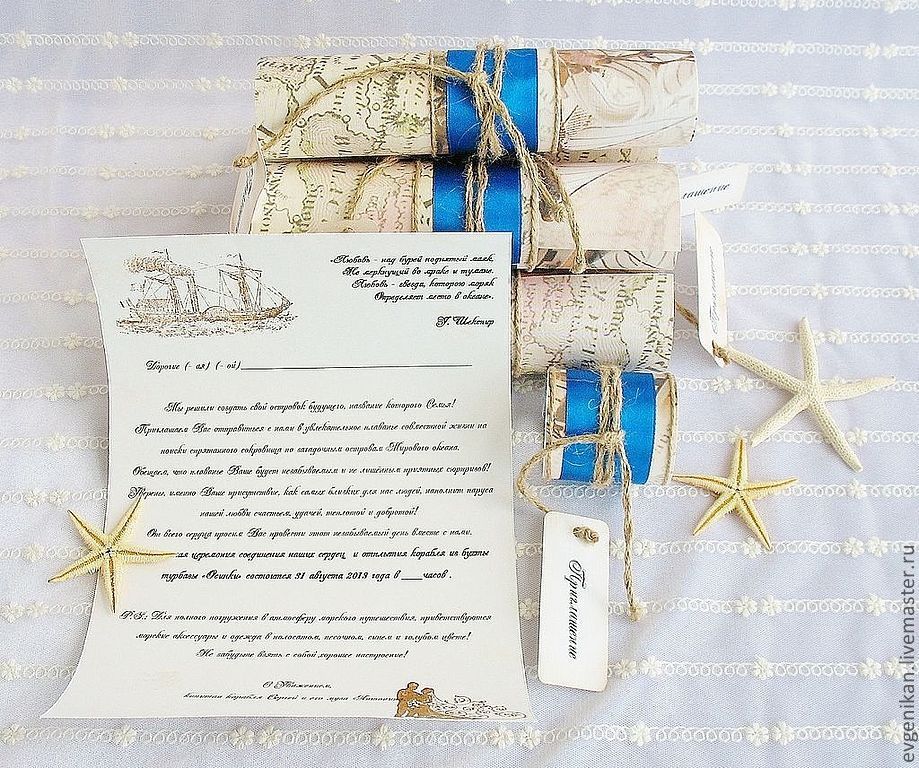 «Любовь - над бурей поднятый маяк,
Не меркнущий во мраке и тумане.
Любовь - звезда, которою моряк
Определяет место в океане».
У. Шекспир
Дорогие (- ая) (- ой)
Мы решили создать свой островок будущего, название которого Семья!
Приглашаем Вас отправиться с нами в увлекательное плавание совместной жизни на
поиски спрятанного сокровища по загадочным островам Мирового океана.
Обещаем, что плавание Ваше будет незабываемым и не лишённым приятных сюрпризов!
Уверены, именно Ваше присутствие, как самых близких для нас людей, наполнит паруса
нашей любви счастьем, удачей, теплотой и добротой!
От всего сердца просим Вас провести этот незабываемый день вместе с нами.
церемония соединения наших сердец и отплытия корабля из бухты
турбазы «Осинки» состоится 31 августа 2013 года в ____часов .
P.S.: Для полного погружения в атмосферу морского путешествия, приветствуются
морские аксессуары и одежда в полосатом, песочном, синем и голубом цвете!
Не забудьте взять с собой хорошее настроение!
С Уважением,
капитан корабля Сергей и его муза
Приглашение
evgenikan.livemaster.ru